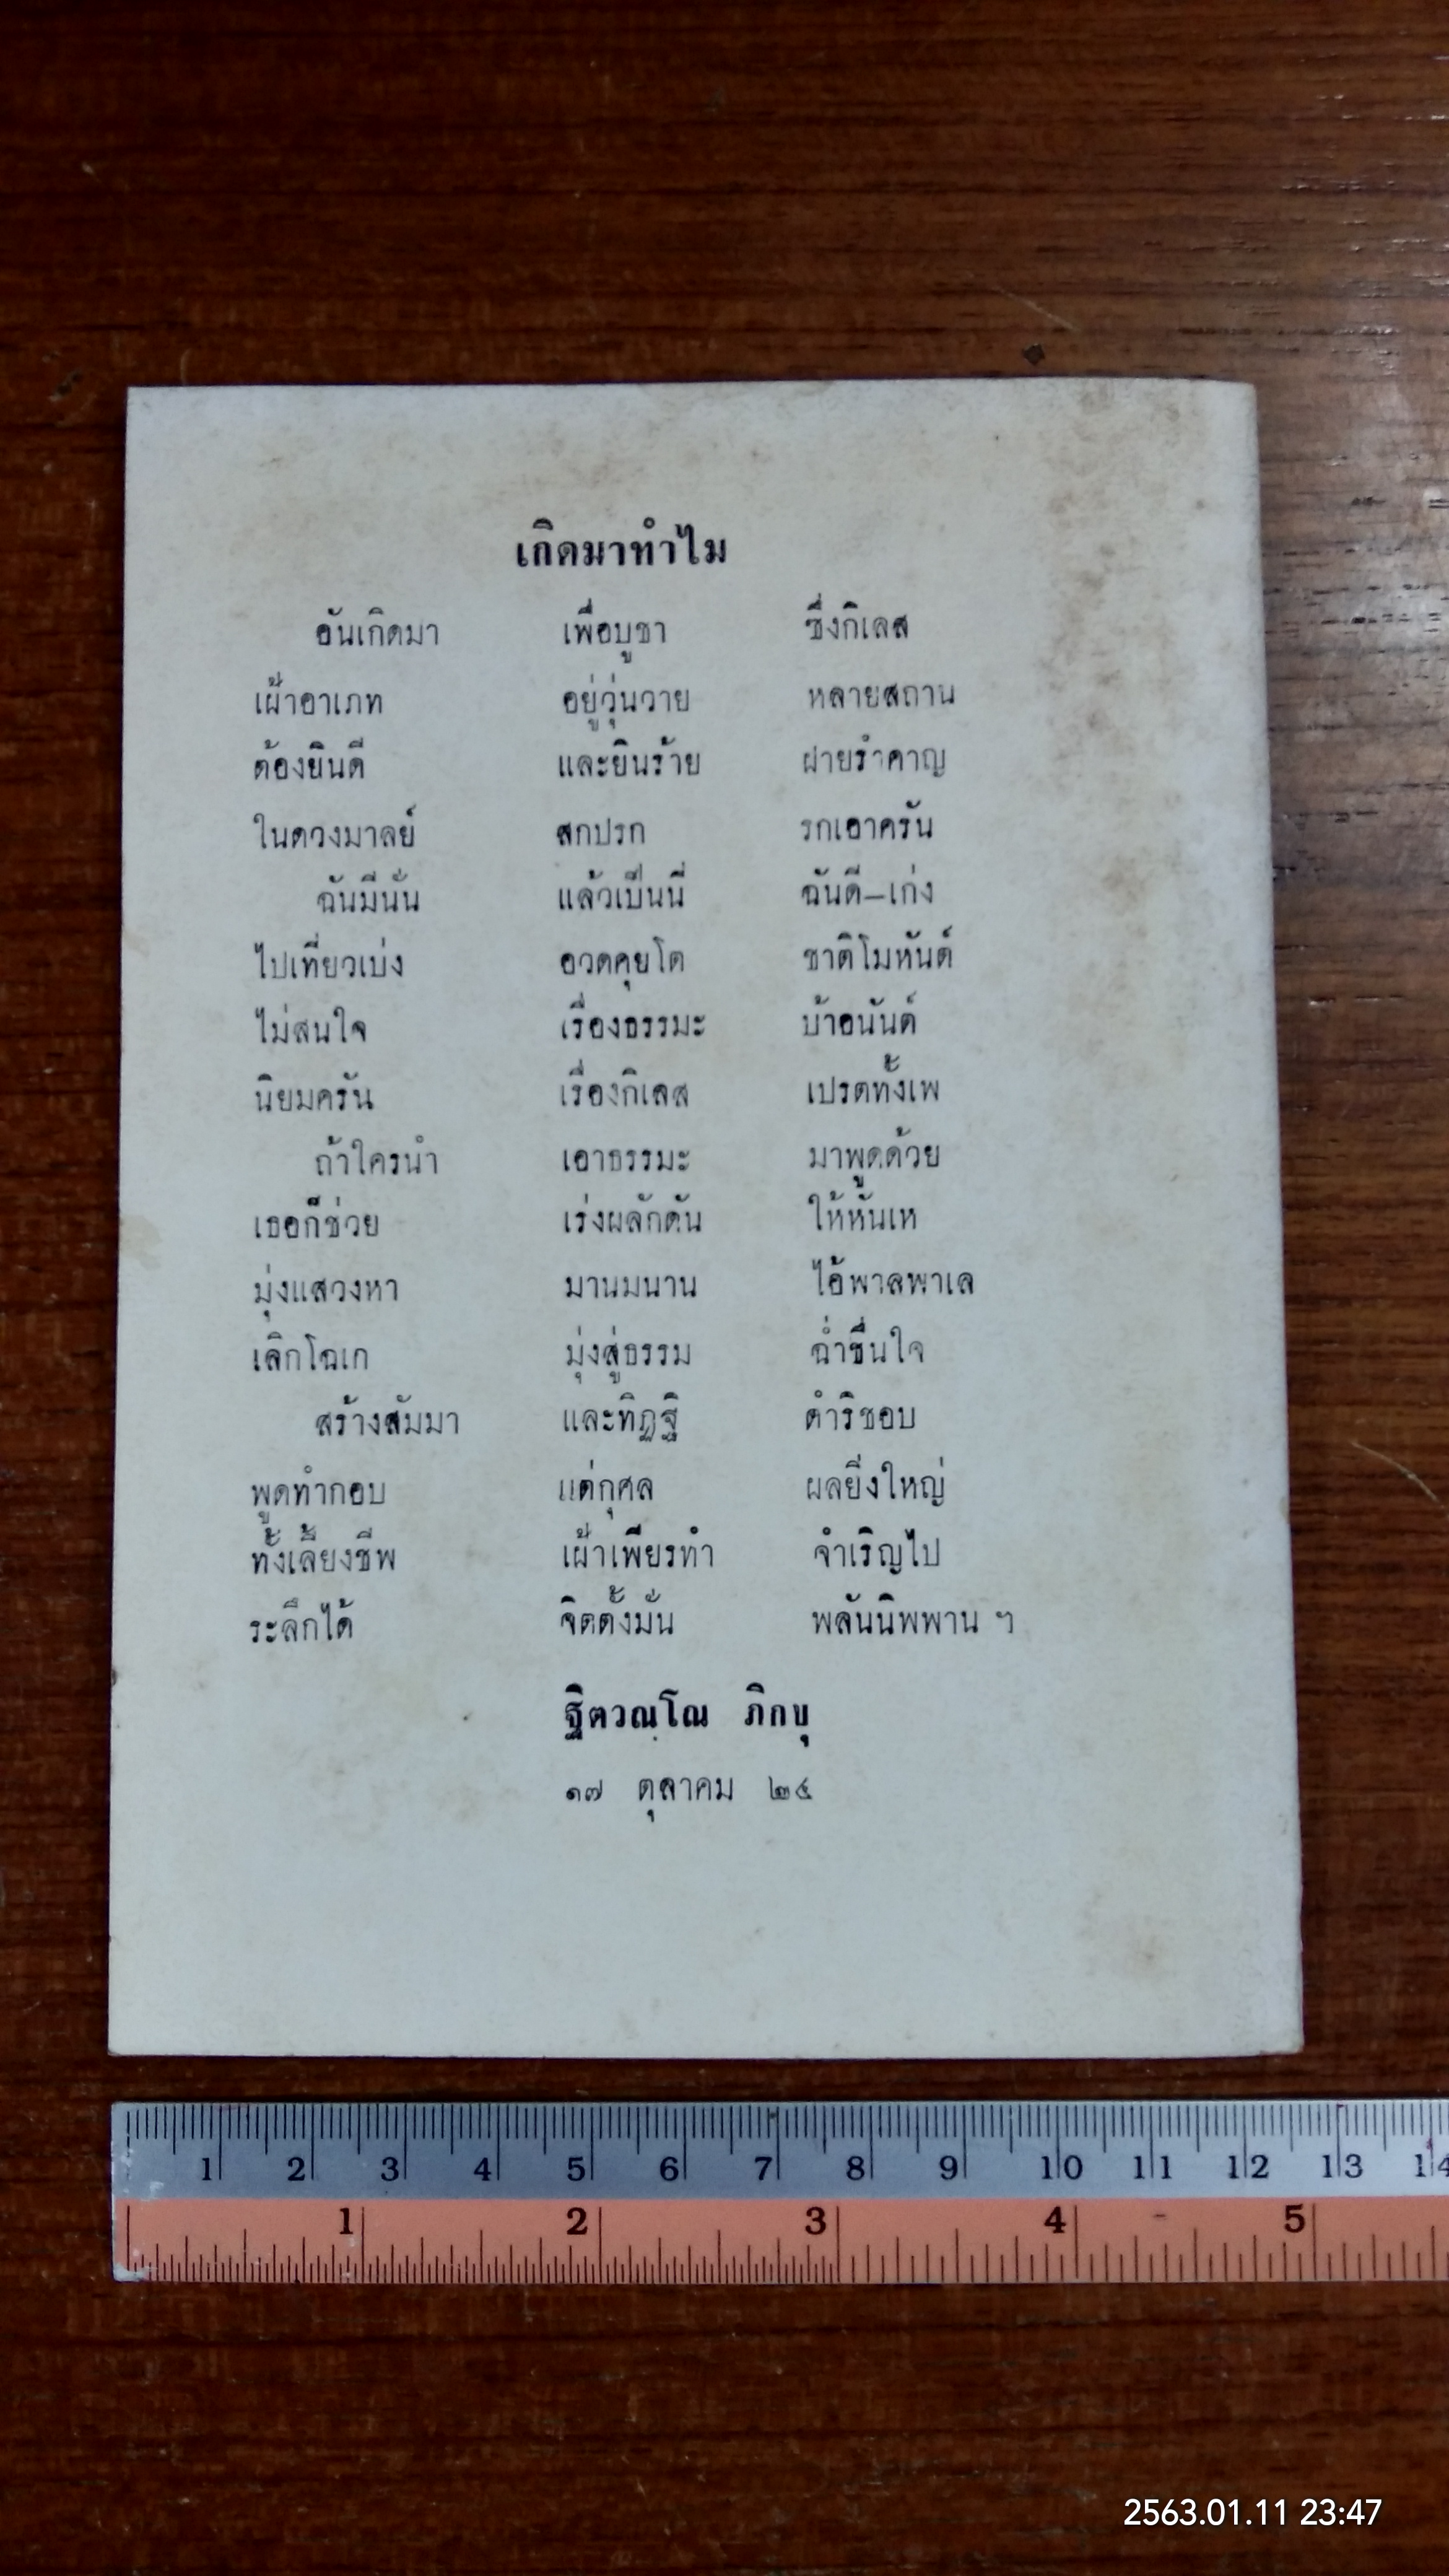 เกิดมาทำไม
อันเกิดมา เพื่อบูชา ซึ่งกิเลส
เฝ้าอาเภท อยู่วุ่นวาย หลายสถาน
ต้องยินดี และยินร้าย ฝ่ายรำคาญ
ในดวงมาลย์ สกปรก รกเอาครัน
ฉันมีนั่น แล้วเป็นนี่ ฉันดี–เก่ง
ไปเที่ยวเบ่ง อวดคุยโต ชาติโมหันต์
ไม่สนใจ เรื่องธรรมะ บ้าอนันต์
นิยมครัน เรื่องกิเลส เปรตทั้งเพ
ถ้าใครนำ เอาธรรมะ มาพูดด้วย
เธอก็ช่วย เร่งผลักดัน ให้หันเห
มุ่งแสวงหา มานมนาน ไอ้พาลพาเล
เลิกโฉเก มุ่งสู่ธรรม ฉ่ำชื่นใจ
สร้างสัมมา และทิฏฐิ ดำริชอบ
พูดทำกอบ แต่กุศล ผลยิ่งใหญ่
ทั้งเลี้ยงชีพ เฝ้าเพียรทำ จำเริญไป
ระลึกได้ จิตตั้งมั่น พลันนิพพาน ฯ
ฐิตวณฺโณ ภิกขุ
๑๗ ตุลาคม ๒๔
1 2 3 4 5 6 7 8 9 10 11 12 13 14
1 2 3 4 5
2563.01.11 23:47